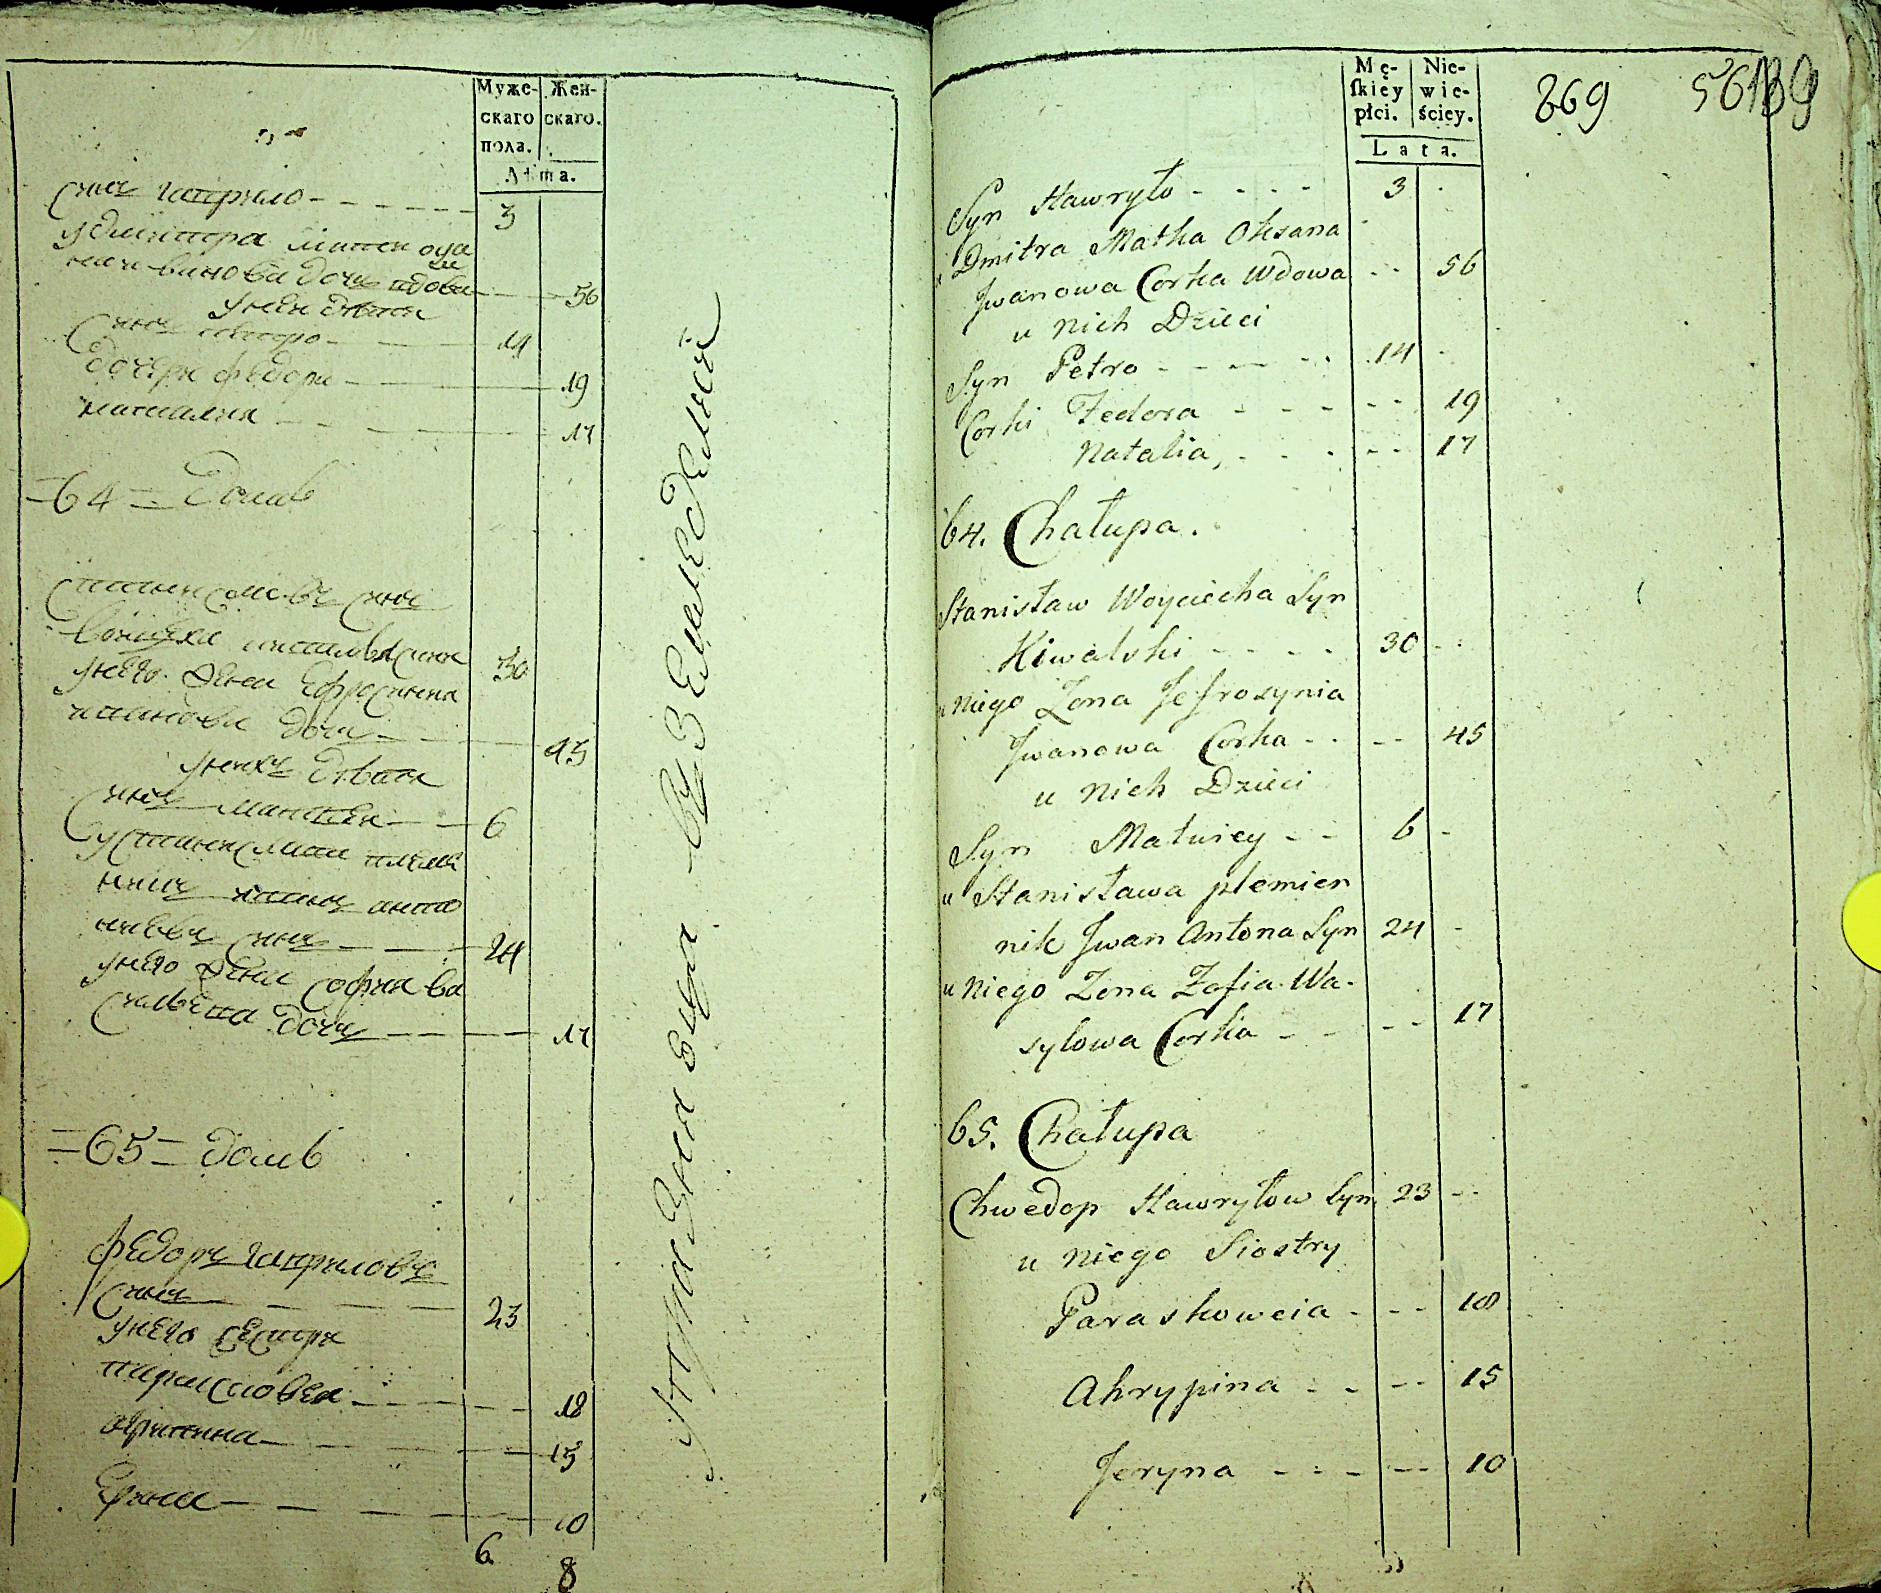 Муже-
скаго
пола.
Жен-
скаго.
Лѣта.
Синъ гаврило 3
удмитра матка
иванова дочь вдова 56
у них дѣти
Синъ петро 14
дочери федора 19
наталия 17
=64= домъ
Синъ
у него жена Ефросиния
иванова дочь 45
у нихъ дѣти
Синъ матвей 6
племе
нникъ иванъ анто
новъ Синъ 24
у него жена София ва
силева дочь 17
=65= домъ
федоръ гавриловъ
Синъ 23
у него сестри
парасковея 18
агрипина 15
Ерина 10
6 8
въ Земледелии
Mę-
skiey
płci.
Nie-
wie-
ściey.
Lata.
869
Syn Hawryło 3
u Dmitra Matka Oksana
Jwanowa Corka Wdowa 56
u nich Dzieci
Syn Petro 14
Corki Fedora 19
Natalia, 17
64. Chałupa.
Stanisław Woyciecha Syn
Kiwalski 30
u niego Zona Jefrosynia
Jwanowa Corka 45
u nich Dzieci
Syn Matwiey 6
u Stanisława plemien
nik Jwan Antona Syn 24
u niego Zona Zofia Wa-
sylowa Corka 17
65. Chałupa
Chwedor Hawryłow Syn 23
u niego Siostry
Paraskoweia 18
Ahrypina 15
Jeryna 10